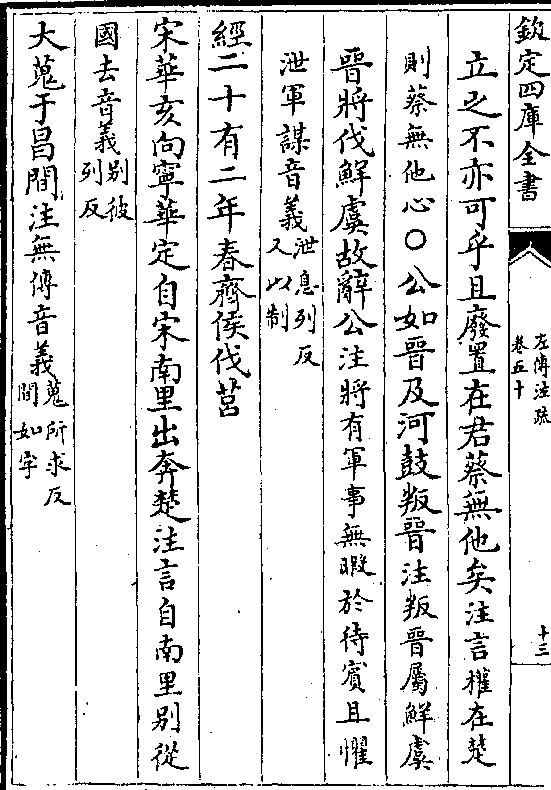 欽定四庫全書
左傳注疏
卷五十
十三
立之不亦可乎且廢置在君蔡無他矣注言權在楚
則蔡無他心○公如晉及河鼓叛晉注叛晉屬鮮虞
晉將伐鮮虞故辭公注將有軍事無暇於待賓且懼
泄軍謀音義泄息列反
又以制
經二十有二年春齊侯伐莒
宋華亥向寧華定自宋南里出奔楚注言自南里別從
國去音義别彼
列反
大蒐于昌間注無傳音義蒐所求反
間如字